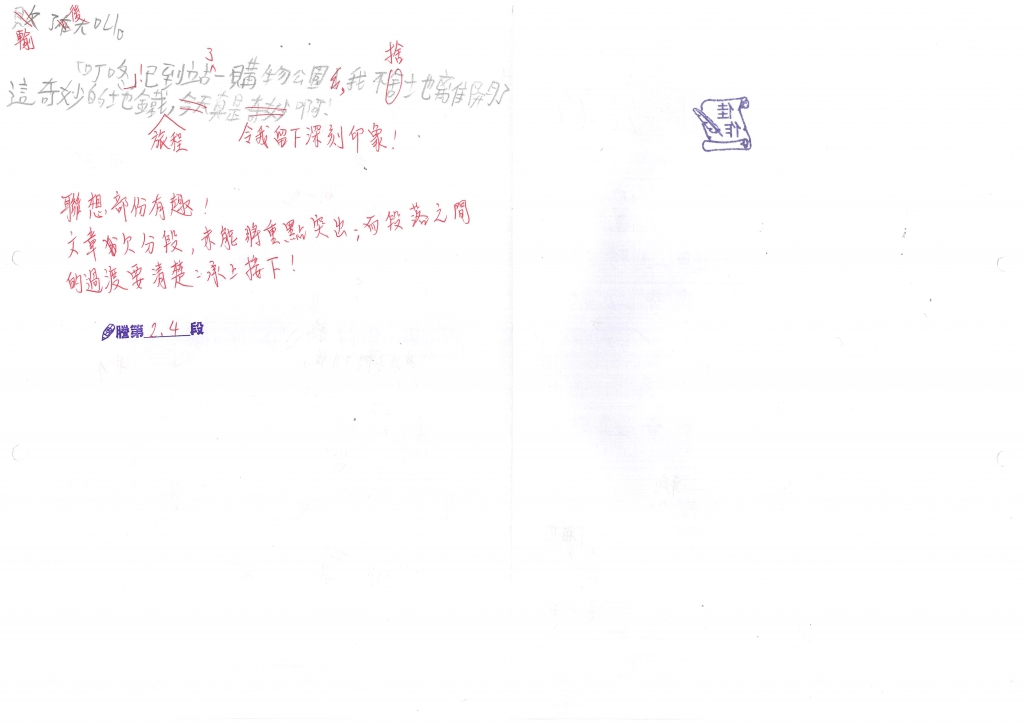 後
輸
了
捨
「叮咚」!已到站—購物公園了,我不捨地離開了
這奇妙的地鐵,真是奇妙啊!
旅程 令我留下深刻印象!
聯想部份有趣!
文章欠分段,未能將重點突出;而段落之間
的過渡要清楚:承上接下!
謄第2、4段
佳
作